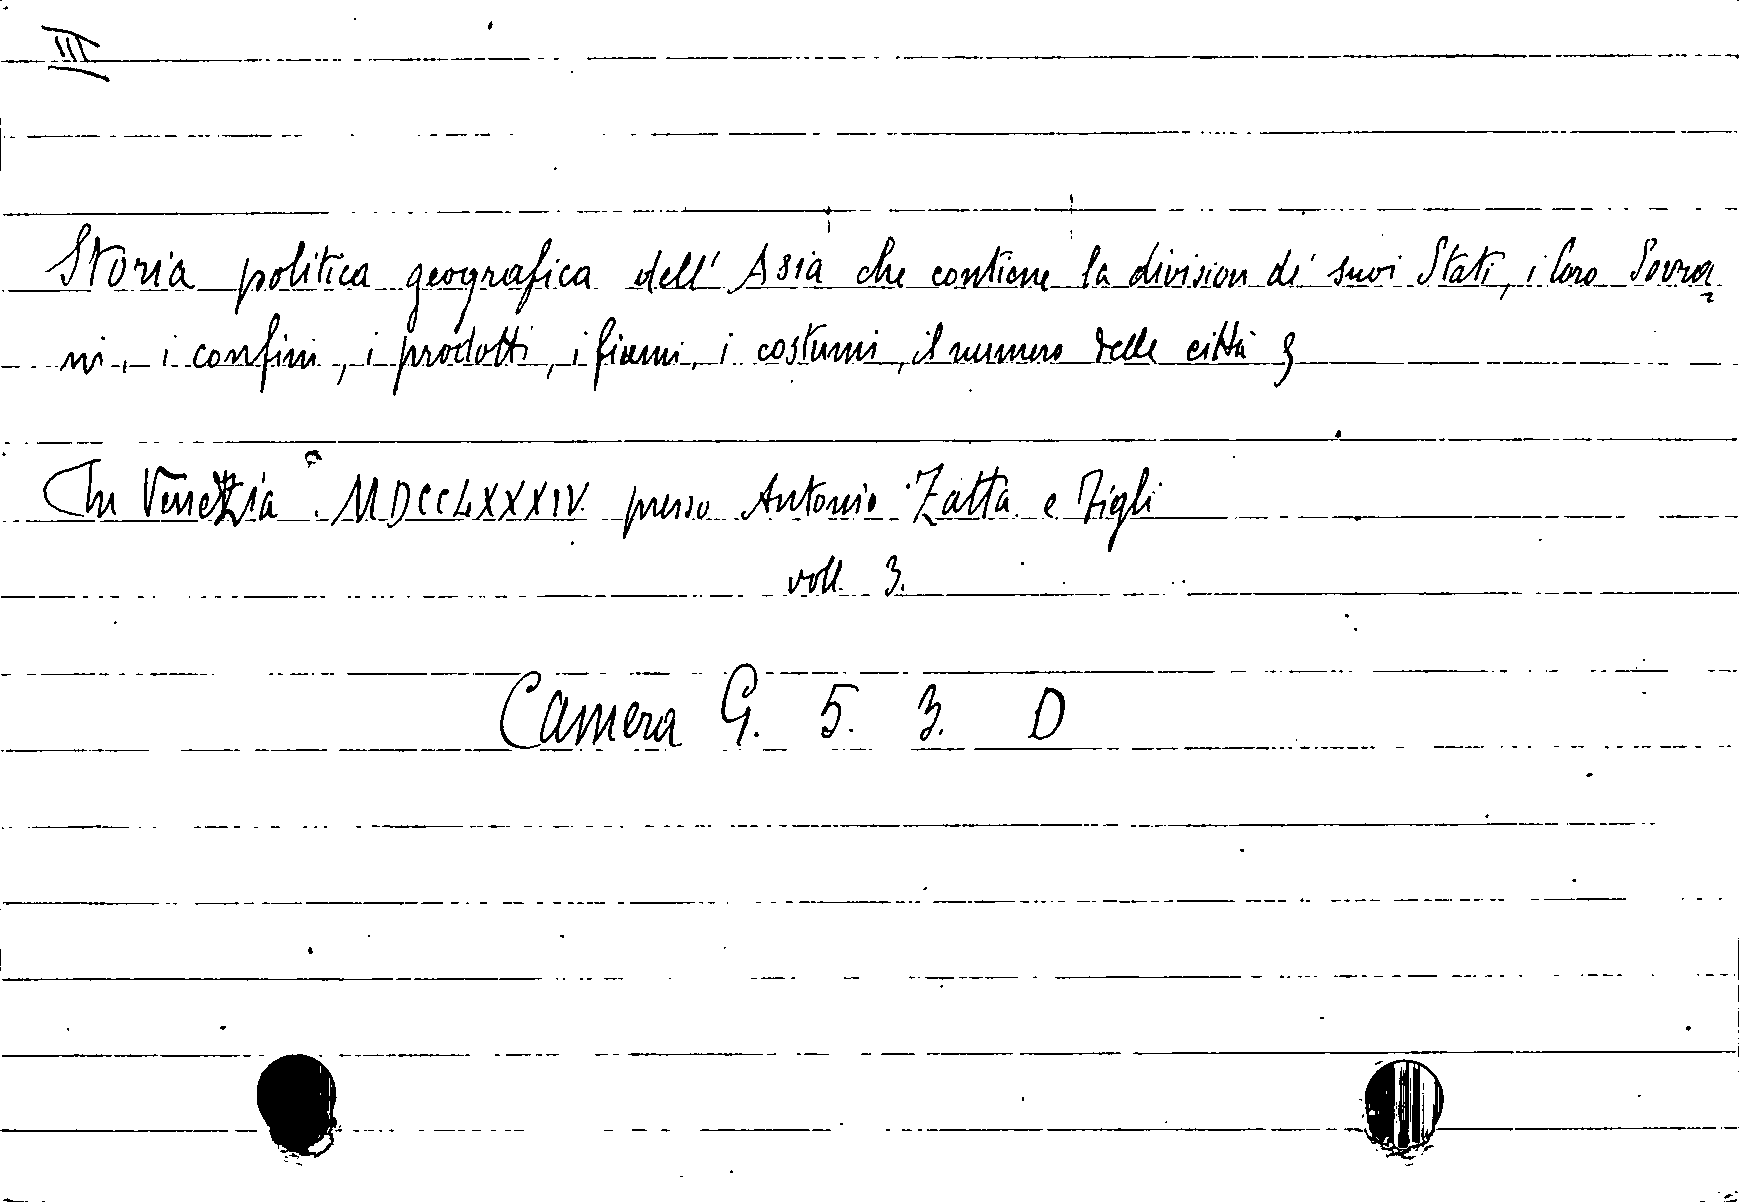 III
Storia politica geografica dell' Asia che contiene la division de' suoi Stati, i loro Sovra
ni, i confini, i prodotti, i fiumi, i costumi, il numero delle città
In Venezia MDCCLXXXIV. presso Antonio Zatta e Figli
voll. 3.
Camera G. 5. 3. D